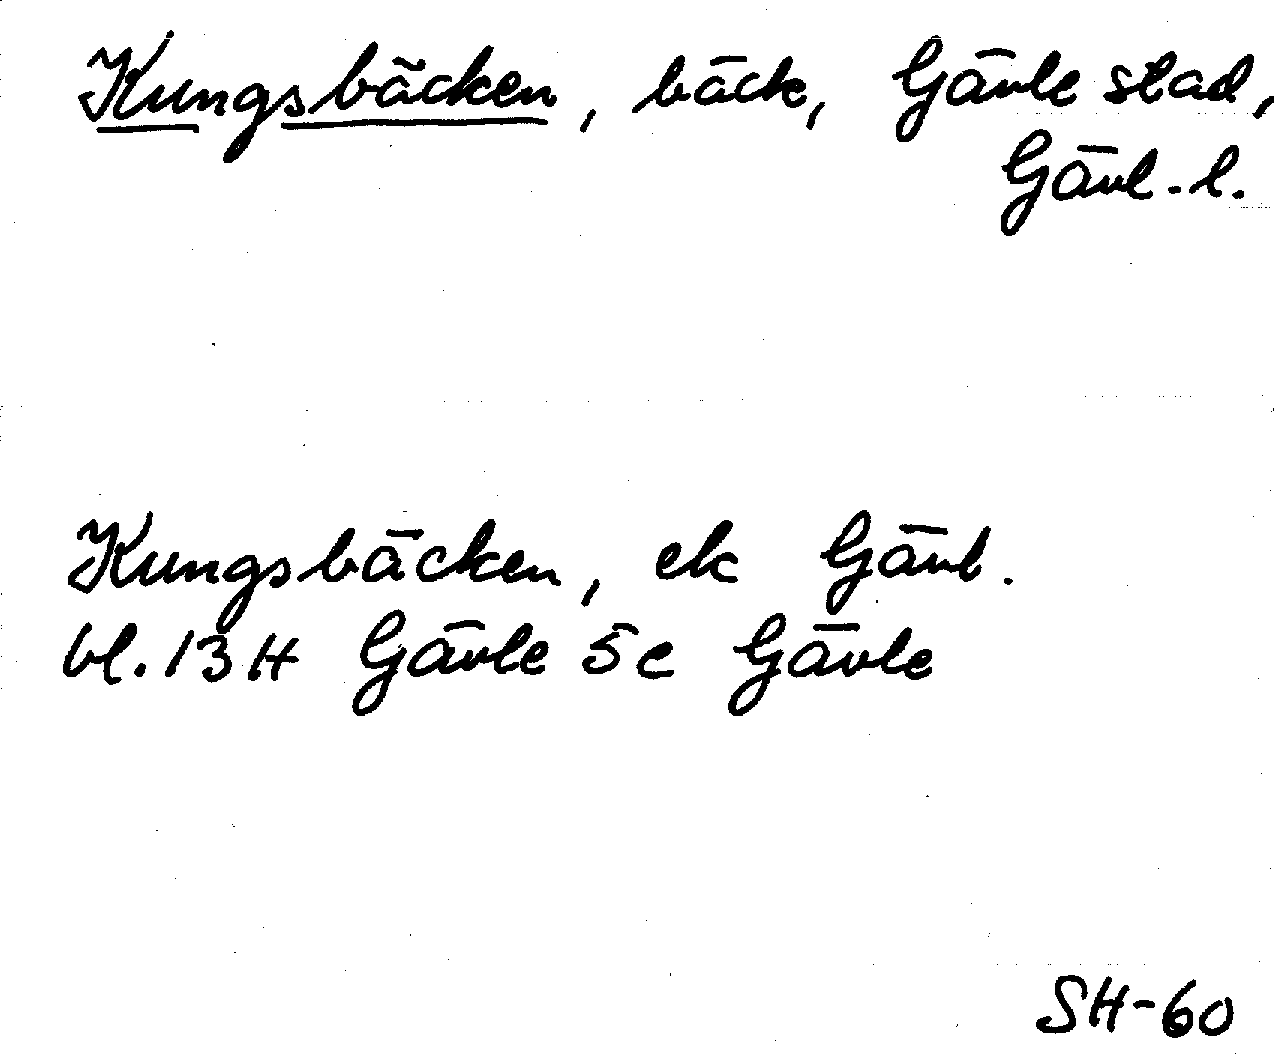 Kungsbäcken, bäck, Gävle stad,
Gävl.l.
Kungsbäcken, ek Gävl.
bl. 13H Gävle 5c Gävle
SH-60